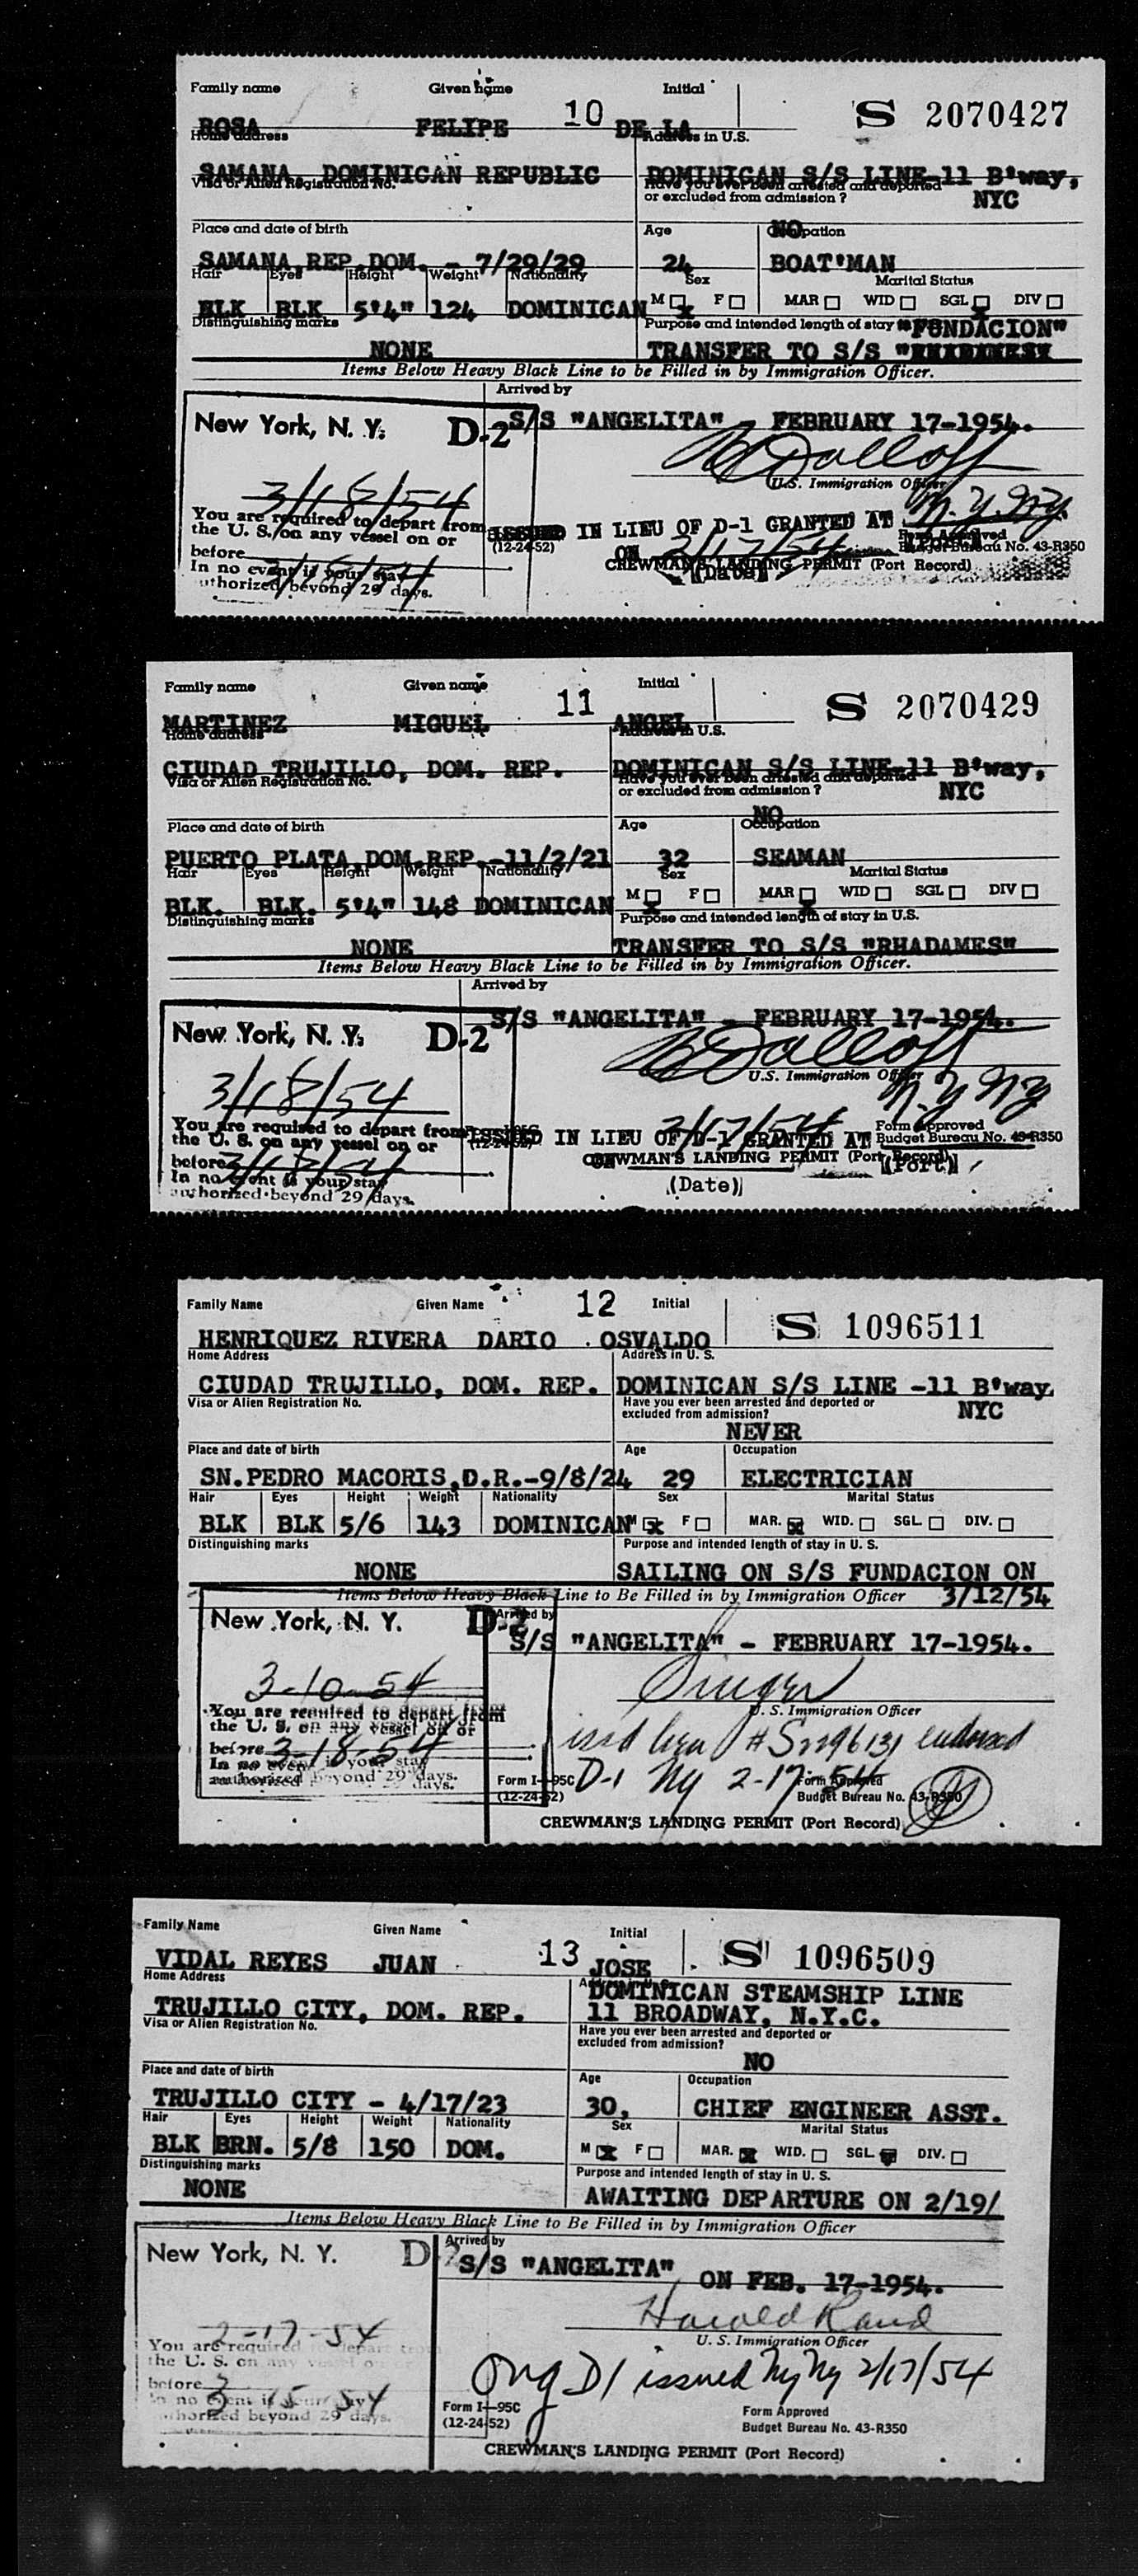 Family name Given name Initial
10 S 2070427
ROSA FELIPE DE LA
Home address Address in U.S.
SAMANA, DOMINICAN REPUBLIC DOMINICAN S/S LINE-11 B'way,
Visa or Alien Registration No. Have you ever been arrested and deported
or excluded from admission ? NYC
NO
Place and date of birth Age Occupation
SAMANA,REP.DOM. - 7/29/29 24 BOAT'MAN
Hair Eyes Height Weight Nationality Sex Marital Status
BLK BLK 5'4" 124 DOMINICAN M F MAR WID SGL DIV
Distinguishing marks Purpose and intended length of stay "FUNDACION"
NONE TRANSFER TO S/S
Items Below Heavy Black Line to be Filled in by Immigration Officer.
Arrived by
New York, N. Y. D-2 S/S "ANGELITA" - FEBRUARY 17-1954.
U.S. Immigration Officer
3/18/54 N.Y. NY
You are required to depart from
the U. S. on any vessel on or ISSUED IN LIEU OF D-1 GRANTED AT
before (12-24-52) ON 2/17/54 Form Approved
Budget Bureau No. 43-R350
In no event is your stay CREWMAN'S LANDING PERMIT (Port Record)
authorized beyond 29 days. (Date)
Family name Given name Initial
11 S 2070429
MARTINEZ MIGUEL ANGEL
Home address Address in U.S.
CIUDAD TRUJILLO, DOM. REP. DOMINICAN S/S LINE-11 B'way,
Visa or Alien Registration No. Have you ever been arrested and deported
or excluded from admission ? NYC
NO
Place and date of birth Age Occupation
PUERTO PLATA,DOM.REP.-11/2/21 32 SEAMAN
Hair Eyes Height Weight Nationality Sex Marital Status
BLK. BLK. 5'4" 148 DOMINICAN M F MAR WID SGL DIV
Distinguishing marks Purpose and intended length of stay in U.S.
NONE TRANSFER TO S/S "RHADAMES"
Items Below Heavy Black Line to be Filled in by Immigration Officer.
Arrived by
New York, N. Y. D-2 S/S "ANGELITA" - FEBRUARY 17-1954.
U.S. Immigration Officer
3/18/54 N.Y NY
You are required to depart from 2/17/54 Form Approved
the U. S. on any vessel on or ISSUED IN LIEU OF D-1 GRANTED AT Budget Bureau No. 43-R350
before 3/18/54 ON CREWMAN'S LANDING PERMIT (Port Record)
In no event is your stay (Port)
authorized beyond 29 days. (Date)
Family Name Given Name 12 Initial
S 1096511
HENRIQUEZ RIVERA DARIO OSVALDO
Home Address Address in U. S.
CIUDAD TRUJILLO, DOM. REP. DOMINICAN S/S LINE -11 B'way.
Visa or Alien Registration No. Have you ever been arrested and deported or
excluded from admission? NYC
NEVER
Place and date of birth Age Occupation
SN.PEDRO MACORIS,D.R.-9/8/24 29 ELECTRICIAN
Hair Eyes Height Weight Nationality Sex Marital Status
BLK BLK 5/6 143 DOMINICAN M F MAR. WID. SGL. DIV.
Distinguishing marks Purpose and intended length of stay in U. S.
NONE SAILING ON S/S FUNDACION ON
Items Below Heavy Black Line to Be Filled in by Immigration Officer 3/12/54
New York, N. Y. D-2 Arrived by
S/S "ANGELITA" - FEBRUARY 17-1954.
3-10-54 Singer
You are required to depart from U. S. Immigration Officer
the U. S. on any vessel on or
before 3-18-54 endorsed
In no event is your stay D-1 NY 2-17-54 Form Approved
authorized beyond 29 days. Form I-95C Budget Bureau No. 43-R350
(12-24-52)
CREWMAN'S LANDING PERMIT (Port Record)
Family Name Given Name Initial
13 S 1096509
VIDAL REYES JUAN JOSE
Home Address Address in U. S.
DOMINICAN STEAMSHIP LINE
TRUJILLO CITY, DOM. REP. 11 BROADWAY, N.Y.C.
Visa or Alien Registration No. Have you ever been arrested and deported or
excluded from admission?
NO
Place and date of birth Age Occupation
TRUJILLO CITY - 4/17/23 30, CHIEF ENGINEER ASST.
Hair Eyes Height Weight Nationality Sex Marital Status
BLK BRN. 5/8 150 DOM. M F MAR. WID. SGL. DIV.
Distinguishing marks Purpose and intended length of stay in U. S.
NONE AWAITING DEPARTURE ON 2/19/
Items Below Heavy Black Line to Be Filled in by Immigration Officer
New York, N. Y. D-2 Arrived by
S/S "ANGELITA" ON FEB. 17-1954.
2-17-54 Harold Rand
You are required to depart from U. S. Immigration Officer
the U. S. on any vessel on or
before 3 15 54 Orig D1 issued NY NY 2/17/54
In no event is your stay Form I-95C Form Approved
authorized beyond 29 days. (12-24-52) Budget Bureau No. 43-R350
CREWMAN'S LANDING PERMIT (Port Record)